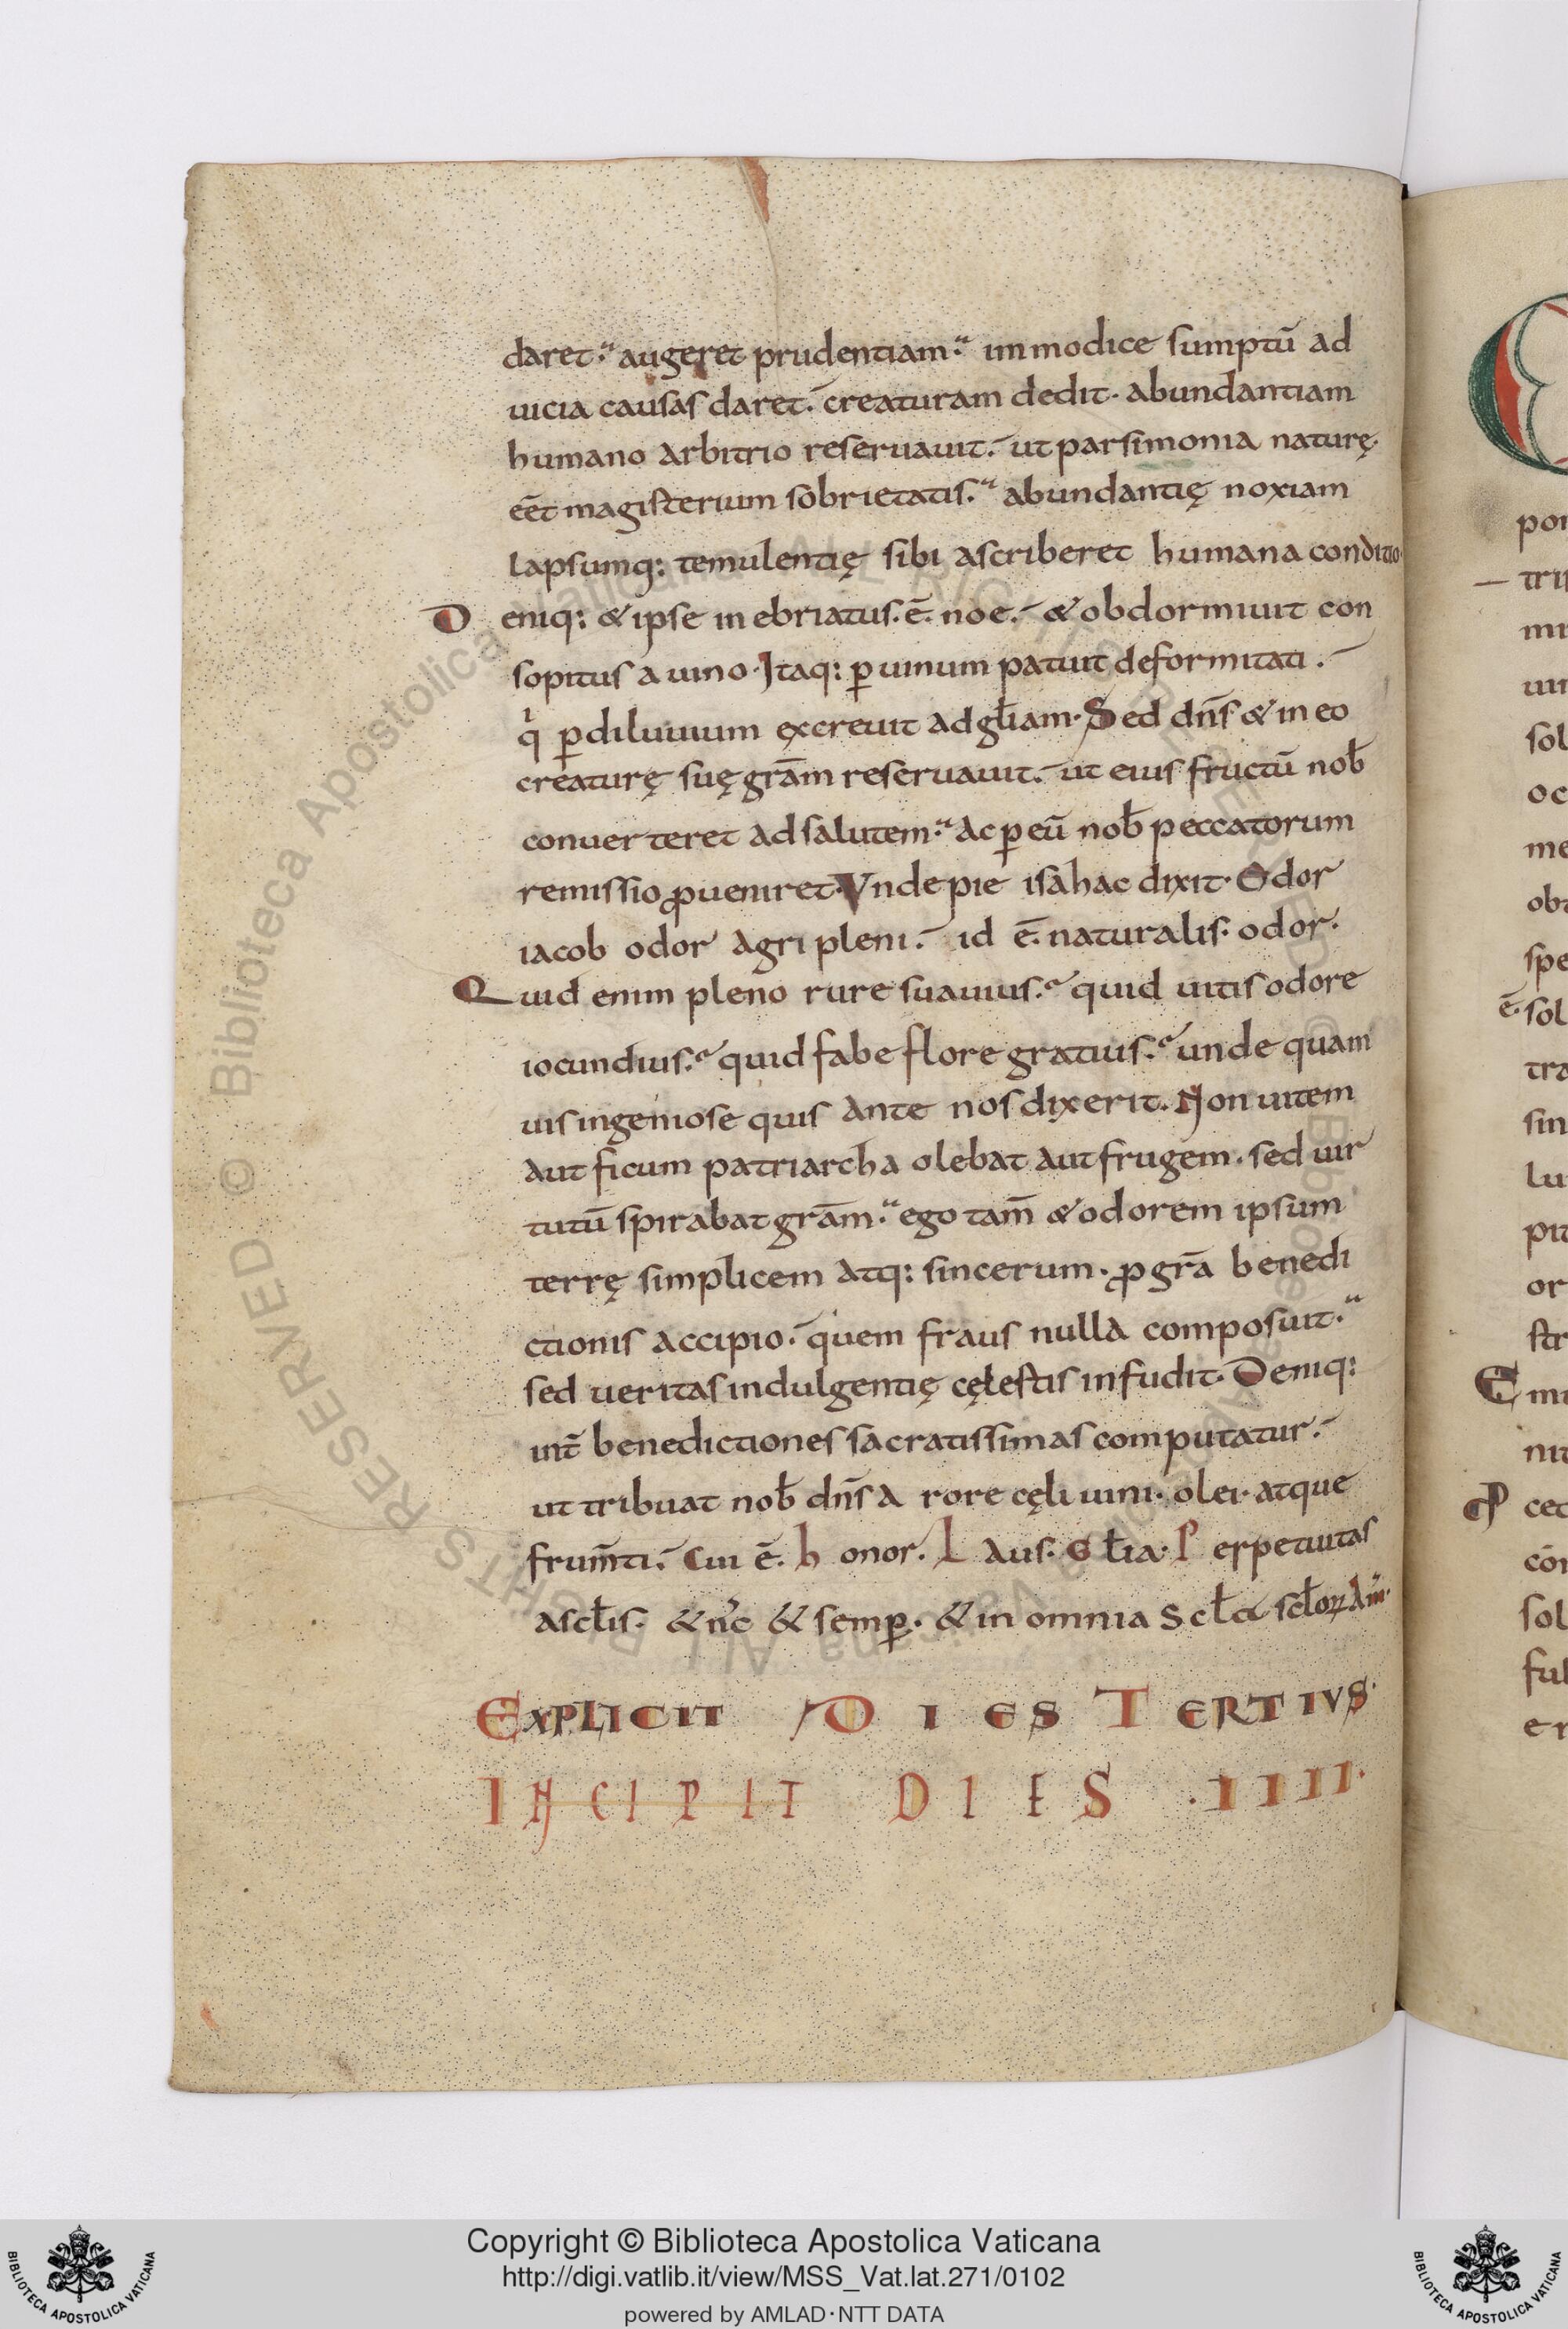 daret. augeret prudentiam. immodice sumptū ad
uicia causas daret. creaturam dedit. abundantiam
humano arbitrio reseruauit. ut parsimonia naturę
eēt magisterium sobrietatis. abundantię noxiam
lapsumq: temulentię sibi ascriberet humana conditio.
Deniq: & ipse inebriatus. ē. noe. & obdormiuit con
sopitus a uino. Itaq: ꝑ uinum patuit deformitati.
qͥ ꝑ diluuium excreuit ad gl̄iam. Sed dn̄s & in eo
creaturę suę grām reseruauit. ut eius fructū nob̄
conuerteret ad salutem. ac ꝑ eū nob̄ peccatorum
remissio ꝓueniret. Vnde pie isahac dixit. Odor
iacob odor agri pleni. id ē. naturalis. odor.
Quid enim pleno rure suauius. quid uitis odore
iocundius. quid fabe flore gratius. unde quam
uis ingeniose quis ante nos dixerit. Non uitem
aut ficum patriarcha olebat aut frugem. sed uir
tutū spirabat grām. ego tam̄ & odorem ipsum
terrę simplicem atq: sincerum. ꝓ grā benedi
ctionis accipio. quem fraus nulla composuit.
sed ueritas indulgentię cęlestis infudit. Deniq:
int̄ benedictiones sacratissimas computatur.
ut tribuat nob̄ dn̄s a rore cęli uini. olei. atque
frum̄ti. Cui ē. honor. Laus. Gl̄ia. Perpetuitas
a scl̄is. & nc̄ & semꝑ. & in omnia scl̄a scl̄oꝝ Am̄.
EXPLICIT DIES TERTIVS.
INCIPIT DIES .IIII.
Copyright © Biblioteca Apostolica Vaticana
http://digi.vatlib.it/view/MSS_Vat.lat.271/0102
powered by AMLAD·NTT DATA
BIBLIOTECA APOSTOLICA VATICANA
BIBLIOTECA APOSTOLICA VATICANA